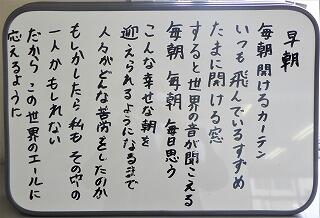 早朝
毎朝開けるカーテン
いつも飛んでいるすずめ
たまに開ける窓
すると世界の音が聞こえる
毎朝 毎朝 毎日思う
こんな幸せな朝を
迎えられるようになるまで
人々がどんな苦労をしたのか
もしかしたら私もその中の
一人かもしれない
だからこの世界のエールに
応えるように